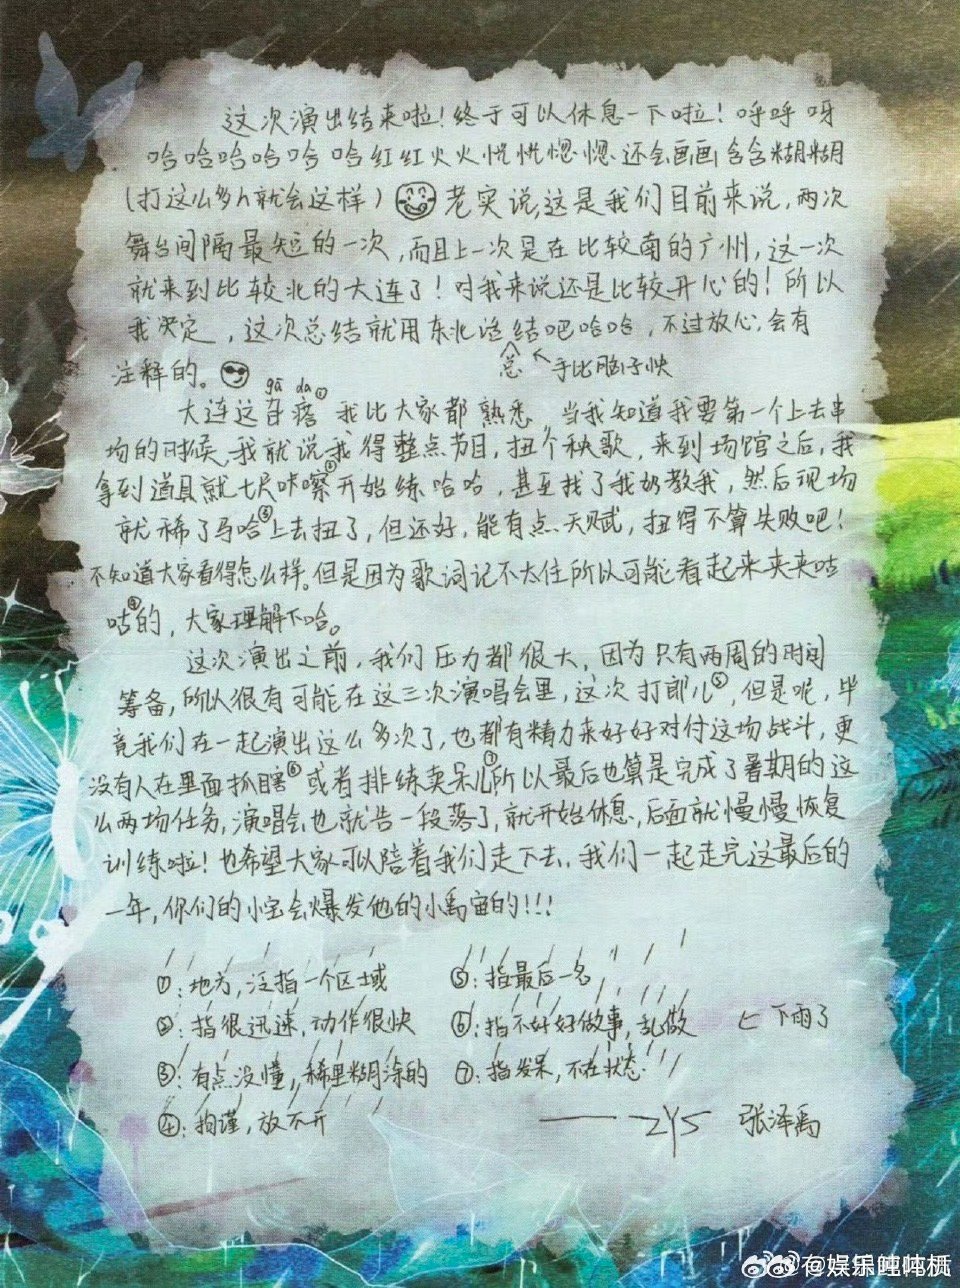 这次演出结束啦!终于可以休息一下啦!呼呼呀
哈哈哈哈哈哈红红火火恍恍惚惚还会画画含含糊糊
(打这么多h就会这样) 老实说,这是我们目前来说,两次
舞台间隔最短的一次,而且上一次是在比较南的广州,这一次
就来到比较北的大连了!对我来说还是比较开心的!所以
我决定,这次总结就用东北话结吧哈哈,不过放心,会有
总 手比脑子快
注释的。
gā da
大连这旮瘩①我比大家都熟悉,当我知道我要第一个上去串
场的时候,我就说我得整点节目,扭个秧歌,来到场馆之后,我
拿到道具就七尺咔嚓②开始练哈哈,甚至找了我奶教我,然后现场
就稀了马哈③上去扭了,但还好,能有点天赋,扭得不算失败吧!
不知道大家看得怎么样。但是因为歌词记不太住所以可能看起来夹夹咕
咕④的,大家理解下哈。
这次演出之前,我们压力都很大,因为只有两周的时间
筹备,所以很有可能在这三次演唱会里,这次打郎儿⑤,但是呢,毕
竟我们在一起演出这么多次了,也都有精力来好好对付这场战斗,更
没有人在里面抓瞎⑥或者排练卖呆儿⑦所以最后也算是完成了暑期的这
么两场任务,演唱会也就告一段落了,就开始休息,后面就慢慢恢复
训练啦!也希望大家可以陪着我们走下去,我们一起走完这最后的
一年,你们的小宝会爆发他的小禹宙的!!!
①:地方,泛指一个区域
②:指很迅速,动作很快
③:有点没懂,稀里糊涂的
④:拘谨,放不开
⑤:指最后一名
⑥:指不好好做事,乱做
⑦:指发呆,不在状态
下雨了
——ZYS 张泽禹
@娱乐吨吨瓩